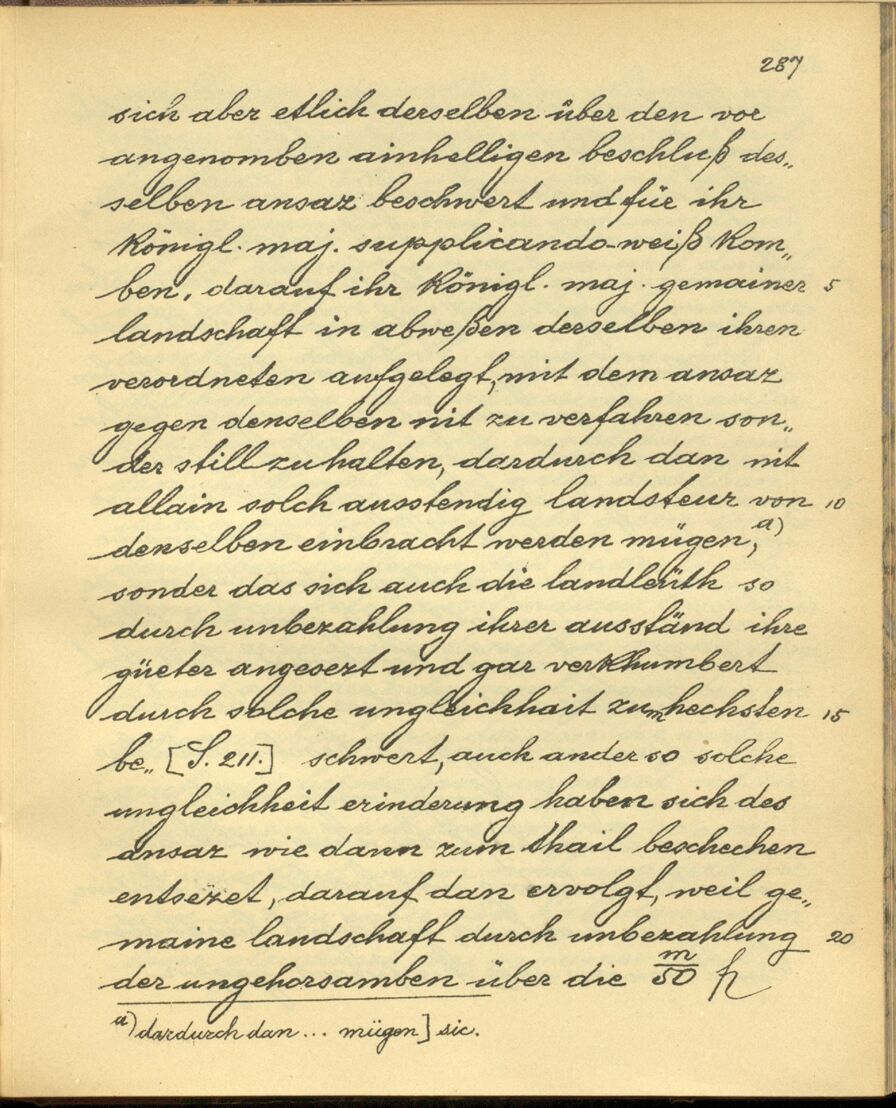 287
sich aber etlich derselben über den vor
angenomben ainhelligen beschluß des„
selben ansaz beschwert und für ihr
königl. maj. supplicando-weiß kom„
ben, darauf ihr königl. maj. gemainer 5
landschaft in abweßen derselben ihren
verordneten aufgelegt, mit dem ansaz
gegen denselben nit zu verfahren son„
der still zu halten, dardurch dan nit
allain solch ausstendig landsteur von 10
denselben einbracht werden mügen,a)
sonder das sich auch die landleüth so
durch unbezahlung ihrer ausständ ihre
güeter angesezt und gar verkhumbert
durch solche ungleichhait zum hechsten 15
be„ [S. 211.] schwert, auch ander so solche
ungleichheit erinderung haben sich des
ansaz wie dann zum thail beschechen
entsezet, darauf dan ervolgt, weil ge„
maine landschaft durch unbezahlung 20
der ungehorsamben über die m/50
a) dardurch dan ... mügen] sic.